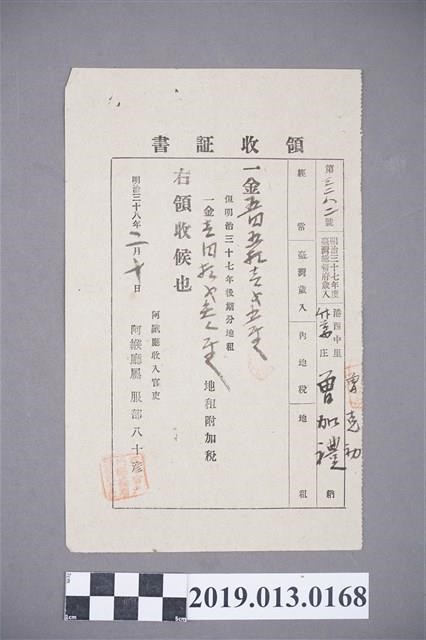 領收証書
第三二八二號
明治三十七年度
臺灣總督府歲入
港西中里
庄
曾克初
曾加禮
納
經常臺灣歲入內地稅地租
一金五円五拾壱戋五厘
但明治三十七年後期分地租
一金壱円拾
地租附加稅
右領收候也
明治三十八年二月十日
阿緱廳收入官吏
阿緱廳屬 服部八十彥
1cm
5cm
2019.013.0168